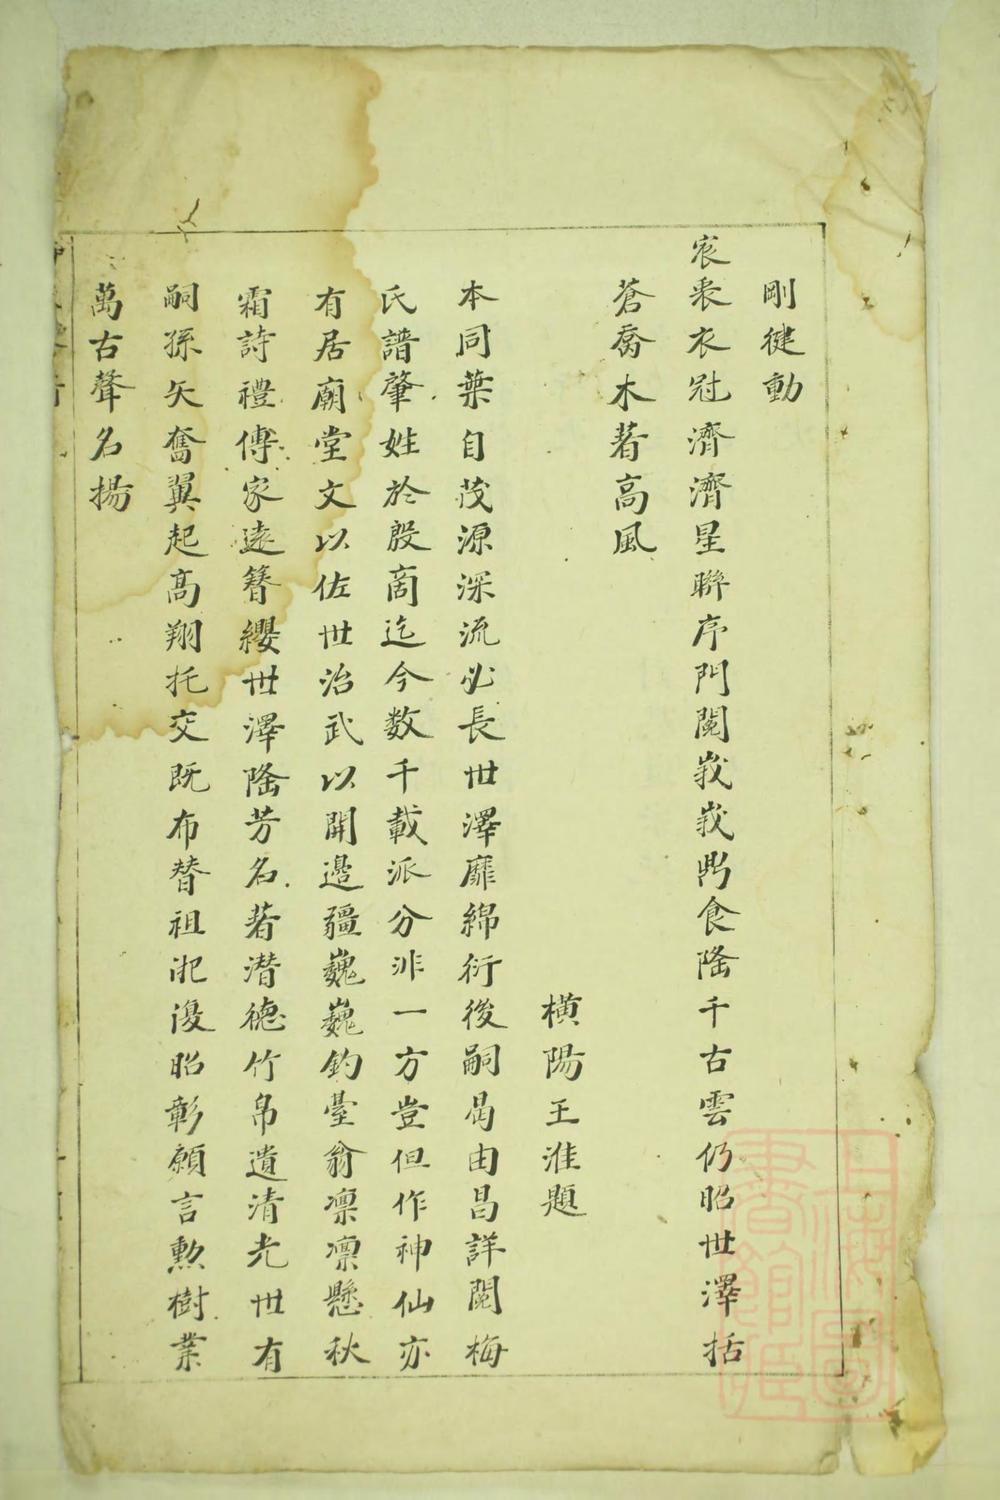 剛徤動
宸袞衣冠濟濟星聯序門閥峩峩鼎食隆千古雲仍昭世澤括
蒼喬木著高風
橫陽王淮題
本同葉自茂源深流必長世澤靡綿衍後嗣曷由昌詳閱梅
氏譜肇姓於殷商迄今数千載派分非一方豈但作神仙亦
有居廟堂文以佐世治武以開邊疆巍巍釣臺翁凛凛懸秋
霜詩禮傳家遠簪纓世澤隆芳名著潛德竹帛遺清光世有
嗣孫矢奮翼起髙翔托交既布替祖沠復昭彰願言勲樹業
萬古聲名揚
上海圖書館藏